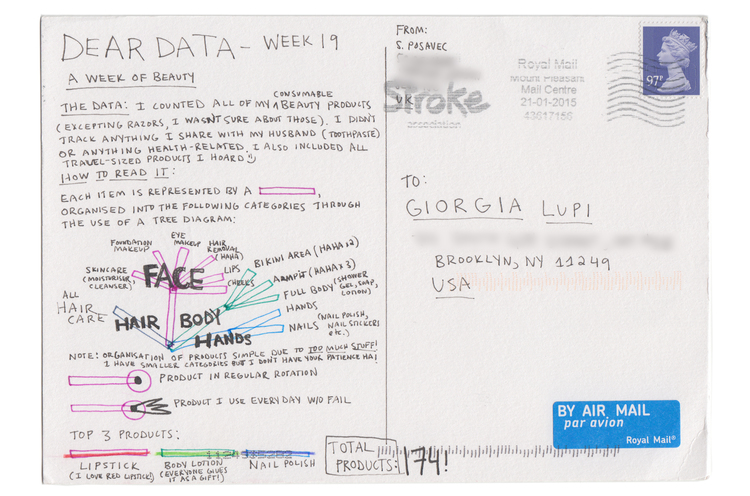 DEAR DATA - WEEK 19
A WEEK OF BEAUTY
THE DATA: I COUNTED ALL OF MY CONSUMABLE BEAUTY PRODUCTS
(EXCEPTING RAZORS, I WASN'T SURE ABOUT THOSE). I DIDN'T
TRACK ANYTHING I SHARE WITH MY HUSBAND (TOOTHPASTE)
OR ANYTHING HEALTH-RELATED. I ALSO INCLUDED ALL
TRAVEL-SIZED PRODUCTS I HOARD
HOW TO READ IT:
EACH ITEM IS REPRESENTED BY A ,
ORGANISED INTO THE FOLLOWING CATEGORIES THROUGH
THE USE OF A TREE DIAGRAM:
ALL
HAIR
CARE
SKINCARE
(MOISTURISER,
CLEANSER)
FOUNDATION
MAKEUP
EYE
MAKEUP
HAIR
REMOVAL
(HAHA)
LIPS
CHEEKS
FACE
HAIR
BODY
HANDS
BIKINI AREA (HAHA x2)
ARMPIT (HAHA x 3)
FULL BODY (SHOWER
GEL, SOAP,
LOTION)
HANDS
NAILS (NAIL POLISH,
NAIL STICKERS
etc.)
NOTE: ORGANISATION OF PRODUCTS SIMPLE DUE TO TOO MUCH STUFF!
I HAVE SMALLER CATEGORIES BUT I DON'T HAVE YOUR PATIENCE HA!
PRODUCT IN REGULAR ROTATION
PRODUCT I USE EVERYDAY W/O FAIL
TOP 3 PRODUCTS:
LIPSTICK
(I LOVE RED LIPSTICK!)
BODY LOTION
(EVERYONE GIVES
IT AS A GIFT!)
NAIL POLISH
TOTAL
PRODUCTS:
174!
FROM:
S. POSAVEC
UK
Stroke
association
Royal Mail
Mount Pleasant
Mail Centre
21-01-2015
43617156
97P
TO:
GIORGIA LUPI
BROOKLYN, NY 11249
USA
BY AIR MAIL
par avion
Royal Mail®